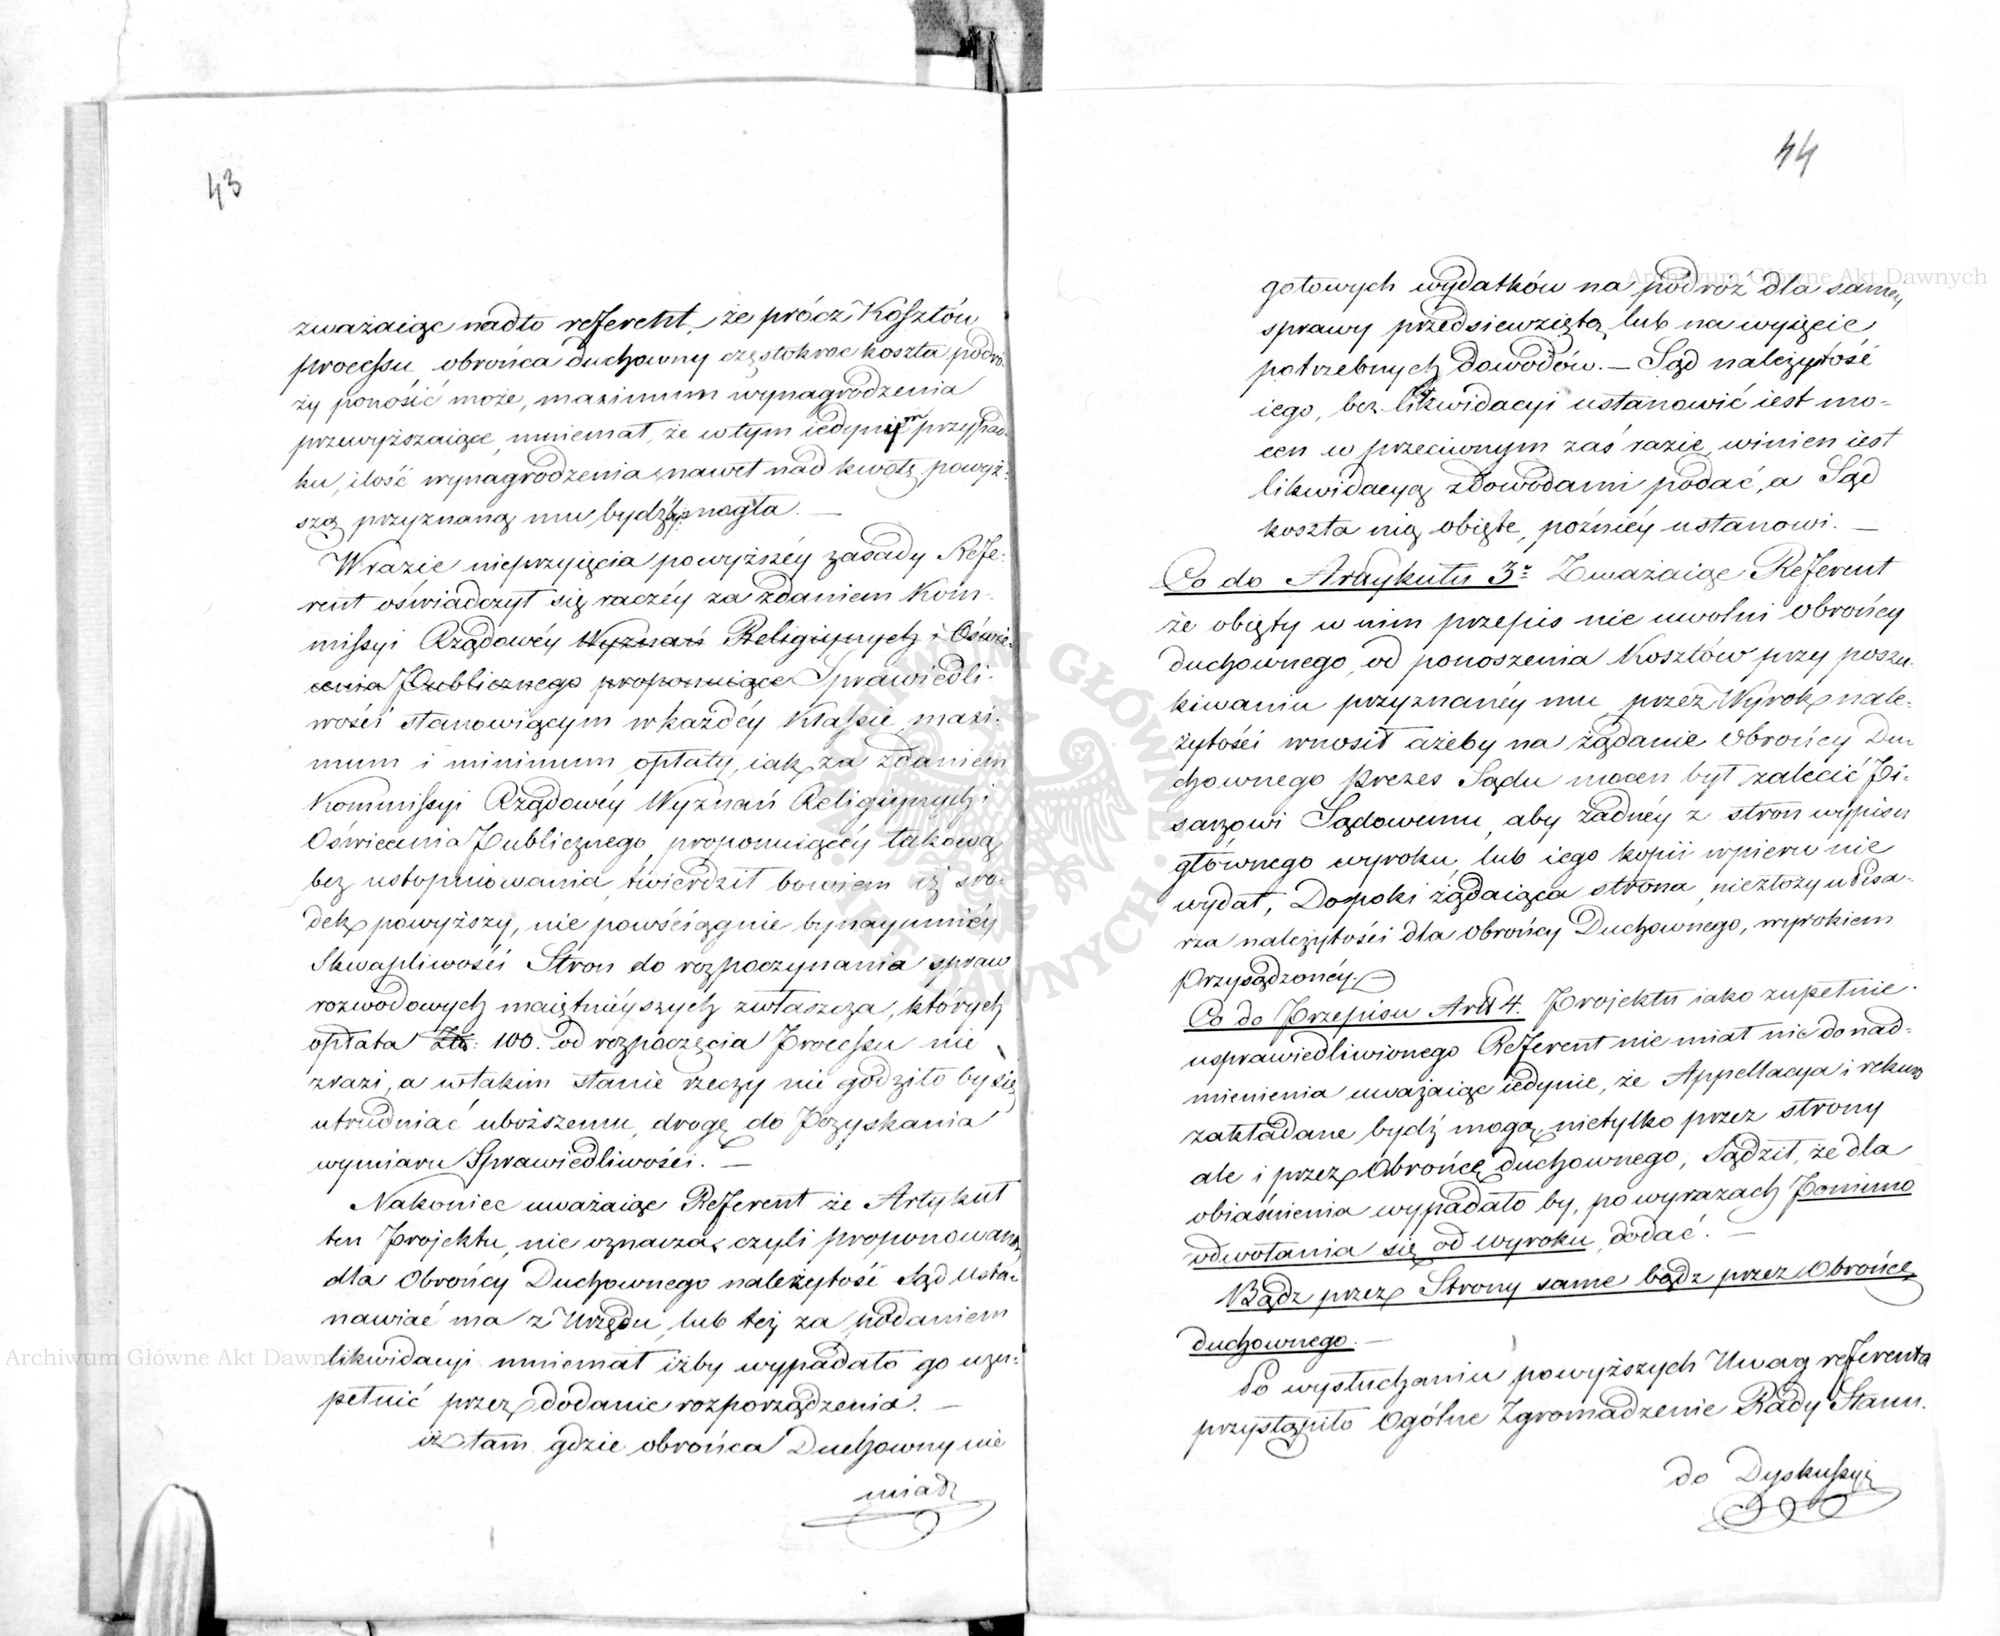 43
zważaiąc nadto referent, że prócz Kosztów
processu obrońca duchowny częstokroć koszta podró-
ży ponosić może, maximum wynagrodzenia
przewyższaiące, mniemał, że w tym iedynym przypad-
ku, ilość wynagrodzenia nawet nad kwotę powyż-
szą przyznaną mu bydź mogła. —
W razie nieprzyięcia powyższéy zasady Refe-
rent oświadczył się raczéy za zdaniem Kom-
missyi Rządowéy Wyznań Religiynych i Oświe-
cenia Publicznego proponuiące Sprawiedli-
wości stanowiącym w każdéy Klassie maxi-
mum i minimum opłaty, iak za zdaniem
Kommissyi Rządowéy Wyznań Religiynych i
Oświecenia Publicznego proponuiącéy takową
bez ustopniowania, twierdził bowiem iż śro-
dek powyższy, nie powściągnie bynaymniéy
Skwapliwości Stron do rozpoczynania spraw
rozwodowych maiętnieyszych zwłaszcza, których
opłata Złł: 100. od rozpoczęcia Processu nie
zrazi, a w takim stanie rzeczy nie godziło by się
utrudniać uboższemu drogę do Pozyskania
wymiaru Sprawiedliwości. —
Nakoniec uważaiąc Referent że Artykuł
ten Projektu nie oznacza, czyli proponowaną
dla Obrońcy Duchownego należytość Sąd usta-
nawiać ma z Urzędu, lub też za podaniem
likwidacyi mniemał iżby wypadało go uzu-
pełnić przez dodanie rozporządzenia. —
iż tam gdzie obrońca Duchowny nie
miał
44
gotowych wydatków na podróż dla saméy
sprawy przedsiewziętą lub na wyięcie
potrzebnych dowodów. — Sąd należytość
iego, bez likwidacyi ustanowić iest mo-
cen w przeciwnym zaś razie, winien iest
likwidacyą z dowodami podać, a Sąd
koszta nią obięte, poźniéy ustanowi. —
Co do Artykułu 3º Zważaiąc Referent
że obięty w nim przepis nie uwolni Obrońcy
duchownego od ponoszenia Kosztów przy poszu-
kiwaniu przyznanéy mu przez Wyrok nale-
żytości wnosił ażeby na żądanie Obrońcy Du-
chownego Prezes Sądu mocen był zalecić Pi-
sarzowi Sądowemu, aby żadnéy z stron wypisu
głównego wyroku lub iego kopii wpierw nie
wydał, Dopoki żądaiąca strona, niezłoży u Pisa-
rza należytości dla Obrońcy Duchownego, wyrokiem
Przysądzonéy. —
Co do Przepisu Artł 4. Projektu iako zupełnie
usprawiedliwionego Referent nie miał nic do nad-
mienienia uważaiąc iedynie, że Appellacya i rekurs
zakładane bydź mogą nietylko przez strony
ale i przez Obrońcę duchownego, Sądził, że dla
obiaśnienia wypadało by, po wyrazach Pomimo
odwołania się od wyroku dodać. —
Bądz przez Strony same bądz przez Obrońcę
duchownego. —
Po wysłuchaniu powyższych Uwag referenta
przystąpiło Ogólne Zgromadzenie Rady Stanu.
do Dyskussyi
Archiwum Główne Akt Dawnych
Archiwum Główne Akt Dawnych
ARCHIWUM GŁÓWNE AKT DAWNYCH